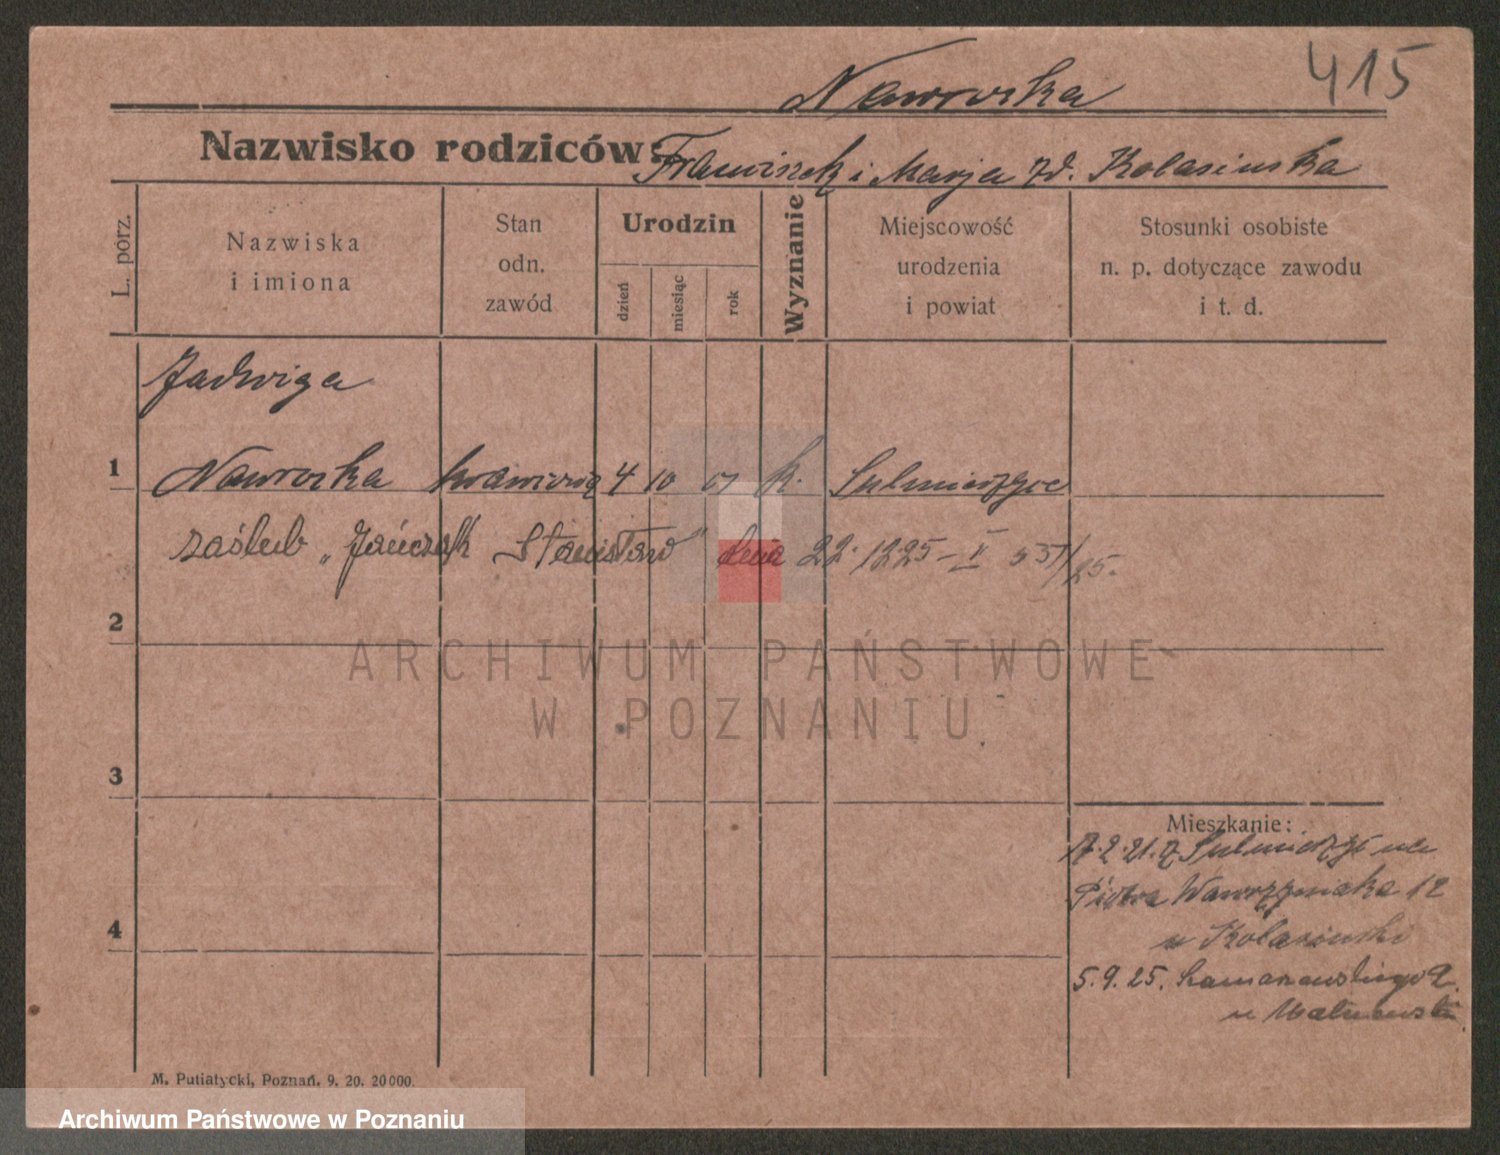 415
Nawrocka
Nazwisko rodziców: Franciszek i Marja zd. Kolasińska
L. porz.
Nazwiska
i imiona
Stan
odn.
zawód
Urodzin
dzień
miesiąc
rok
Wyznanie
Miejscowość
urodzenia
i powiat
Stosunki osobiste
n. p. dotyczące zawodu
i t. d.
Jadwiga
1 Nawrocka krawcową 4 10 07 k. Sulmierzyce
zaślub „Jańczak Stanisław" dnia 22. 1225 - V 537/25.
2
3
4
Mieszkanie:
7.2.21. z Sulmierzyc na
Piotra Wawrzyniaka 12
u Kolasinski
5.9.25. 2.
u
M. Putiatycki, Poznań. 9. 20. 20000.
ARCHIWUM PAŃSTWOWE
W POZNANIU
Archiwum Państwowe w Poznaniu